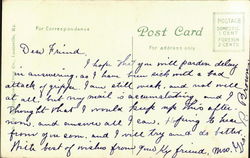 For Correspondence
Post Card
For address only
PLACE
POSTAGE
DOMESTIC
1 CENT
FOREIGN
2 CENTS
Dear Friend,
I hope that you will pardon delay
in answering, as I have been sick with a bad
attack of grippe. I am still weak, and not well
at all, but my mail is accumulating and I
thought that I would keep up this after
noon, and answer all I can. Hoping to hear
from you soon, and I will try and do better.
With best of wishes from your friend, Mrs.